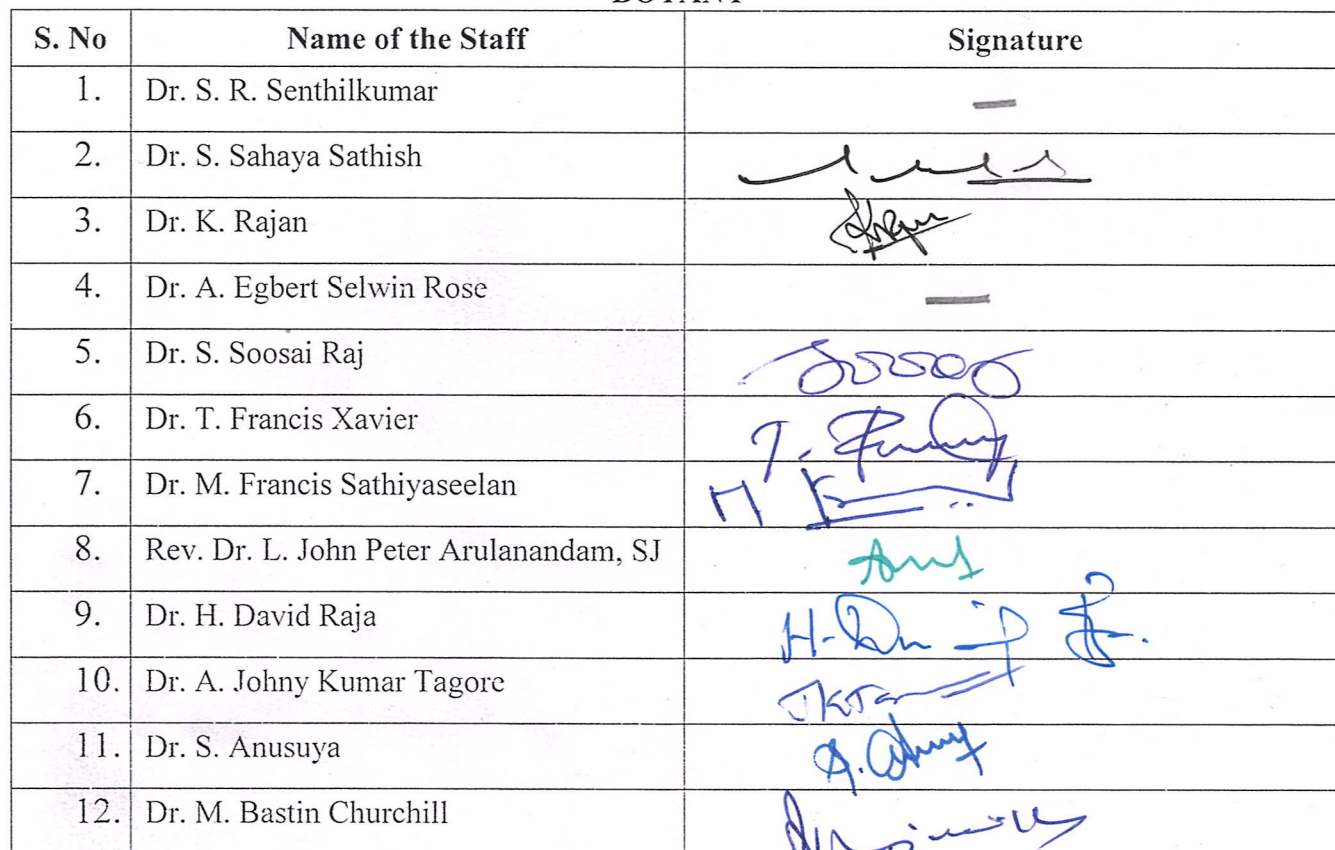 BOTANY
S. No Name of the Staff Signature
1. Dr. S. R. Senthilkumar —
2. Dr. S. Sahaya Sathish
3. Dr. K. Rajan
4. Dr. A. Egbert Selwin Rose —
5. Dr. S. Soosai Raj
6. Dr. T. Francis Xavier
7. Dr. M. Francis Sathiyaseelan
8. Rev. Dr. L. John Peter Arulanandam, SJ
9. Dr. H. David Raja
10. Dr. A. Johny Kumar Tagore
11. Dr. S. Anusuya
12. Dr. M. Bastin Churchill